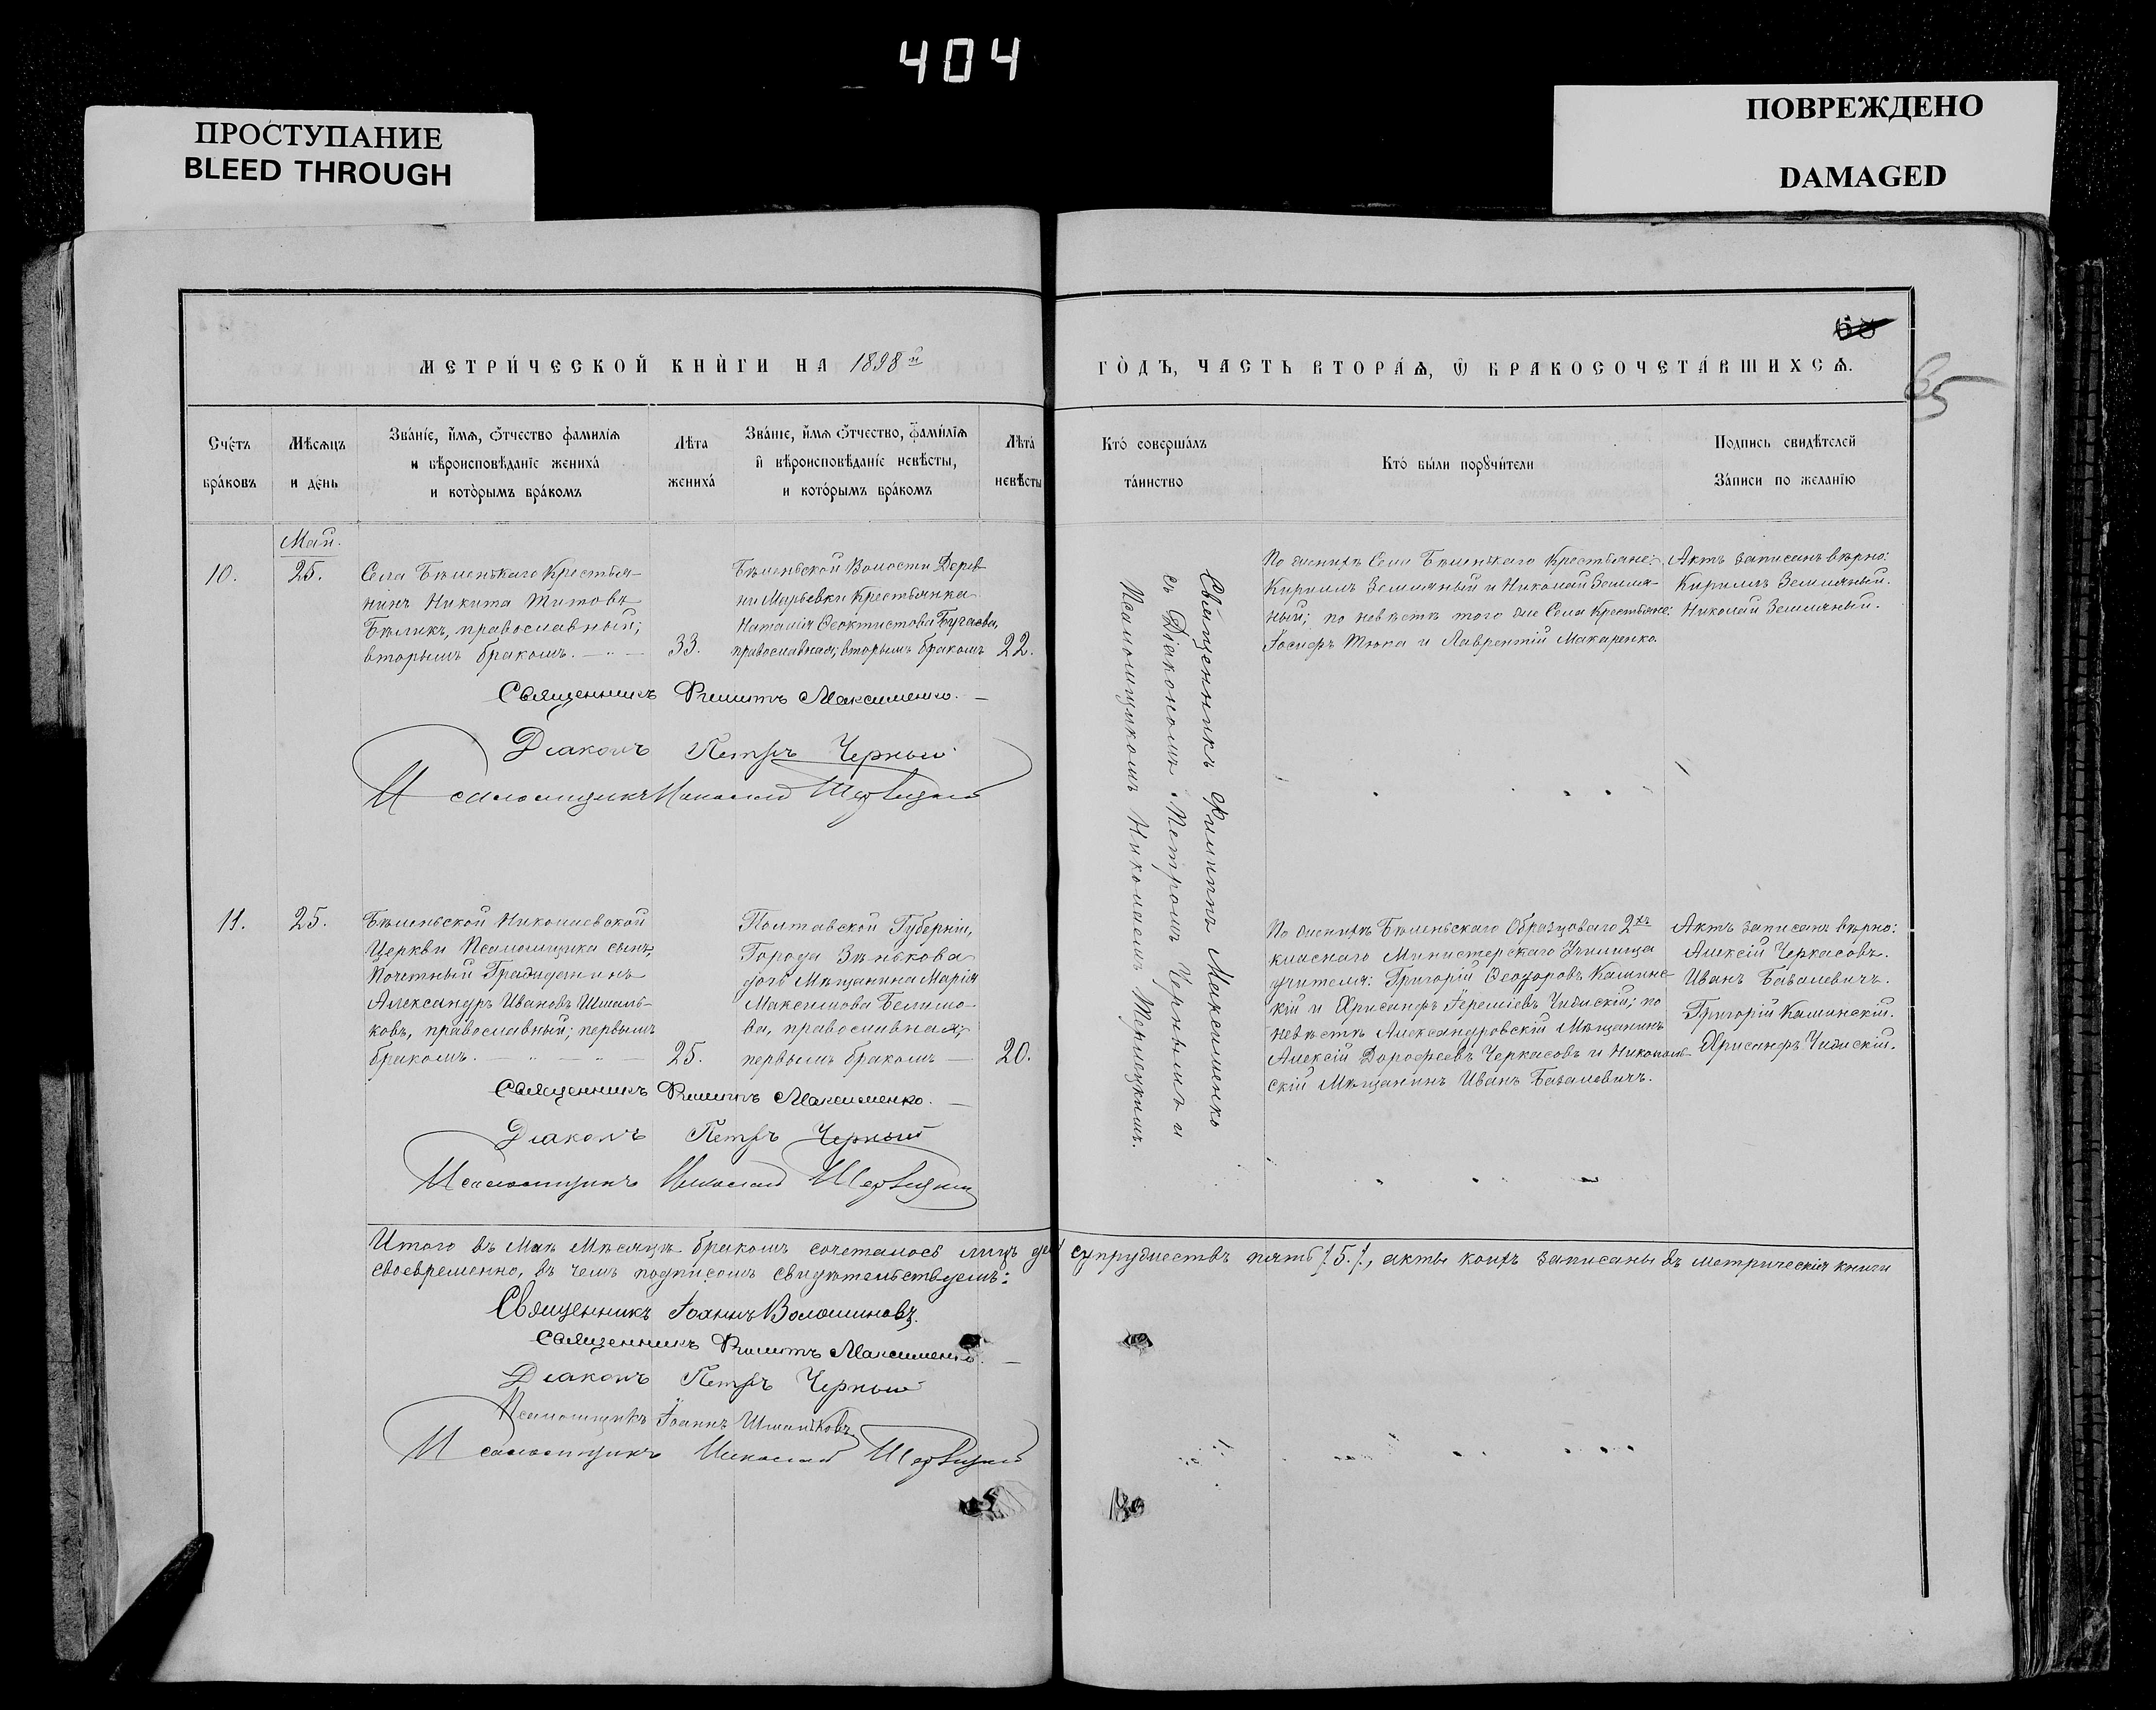 404
ПРОСТУПАНИЕ
BLEED THROUGH
ПОВРЕЖДЕНО
DAMAGED
65
МЕТРИ́ЧЕСКОЙ КНИ́ГИ НА 1898й
ГО́ДЪ, ЧАСТЬ ВТОРА́Я, Ѿ БРАКОСОЧЕТА́ВШИХСѦ.
Счётъ бра́ковъ
Мѣсяцъ и день
Зва́нїе, и́мя, о́тчество фами́лїя
и вѣроисповѣ́данїе жениха́
и кото́рымъ бра́комъ
Лѣта жениха́
Зва́нїе, и́мя о́тчество, фами́лїя
и вѣроисповѣ́данїе невѣ́сты,
и кото́рымъ бра́комъ
Лѣта́ невѣ́сты
Кто́ соверша́лъ
та́инство
Кто́ бы́ли порꙋчи́тели
Подпись свидѣ́телей
За́писи по жела́нїю
Май.
10.
25.
Села Бѣленькаго Крестья-
нинъ Никита Титовъ
Бѣликъ, православный;
вторымъ бракомъ.
33.
Бѣленьской Волости Дерев-
ни Марьевки Крестьянка
Наталія Ѳеоктистова Бугаева,
православная; вторымъ бракомъ
22.
Священникъ Филиппъ Максименко
съ Діакономъ Петромъ Чернымъ и
Псаломщикомъ Николаемъ
По женихѣ Села Бѣленькаго Крестьяне:
Кириллъ Земляный и Николай Земля-
ный; по невѣстѣ того же Села Крестьяне:
Іосифъ Тюпа и Лаврентій Макаренко.
Актъ записанъ вѣрно:
Кириллъ Земляный.
Николай Земляный.
Священникъ Филиппъ Максименко.
Діаконъ Петръ Черный
Псаломщикъ Николай
11.
25.
Бѣленьской Николаевской
Церкви Псаломщика сынъ,
Почетный Гражданинъ
Александръ Ивановъ Шмань-
ковъ, православный; первымъ
бракомъ.
25.
Полтавской Губерніи,
Города Зѣнькова
дочь Мѣщанина Марія
Максимова Белимо-
ва, православная;
первымъ бракомъ
20.
По женихѣ Бѣленьскаго Образцоваго 2хъ
класнаго Министерскаго Училища
учителя: Григорій Ѳеодоровъ Камине-
кій и Хрисанфъ Іереміевъ; по
невѣстѣ Александровскій Мѣщанинъ
Алексій Дорофеевъ Черкасовъ и Никополь-
скій Мѣщанинъ Иванъ Базалевичъ.
Актъ записанъ вѣрно:
Алексій Черкасовъ.
Иванъ Базалевичъ.
Григорій Каминскій.
Хрисанфъ
Священникъ Филиппъ Максименко.
Діаконъ Петръ Черный
Псаломщикъ Николай
Итого въ Маѣ Мѣсяцѣ бракомъ сочеталось лицъ супружествъ пять /5./, акты коихъ записаны въ метрическія книги
своевременно, въ чемъ подписомъ свидѣтельствуемъ:
Священникъ Іоаннъ Волошиновъ.
Священникъ Филиппъ Максименко.
Діаконъ Петръ Черный
Псаломщикъ Іоаннъ Шманьковъ
Псаломщикъ Николай